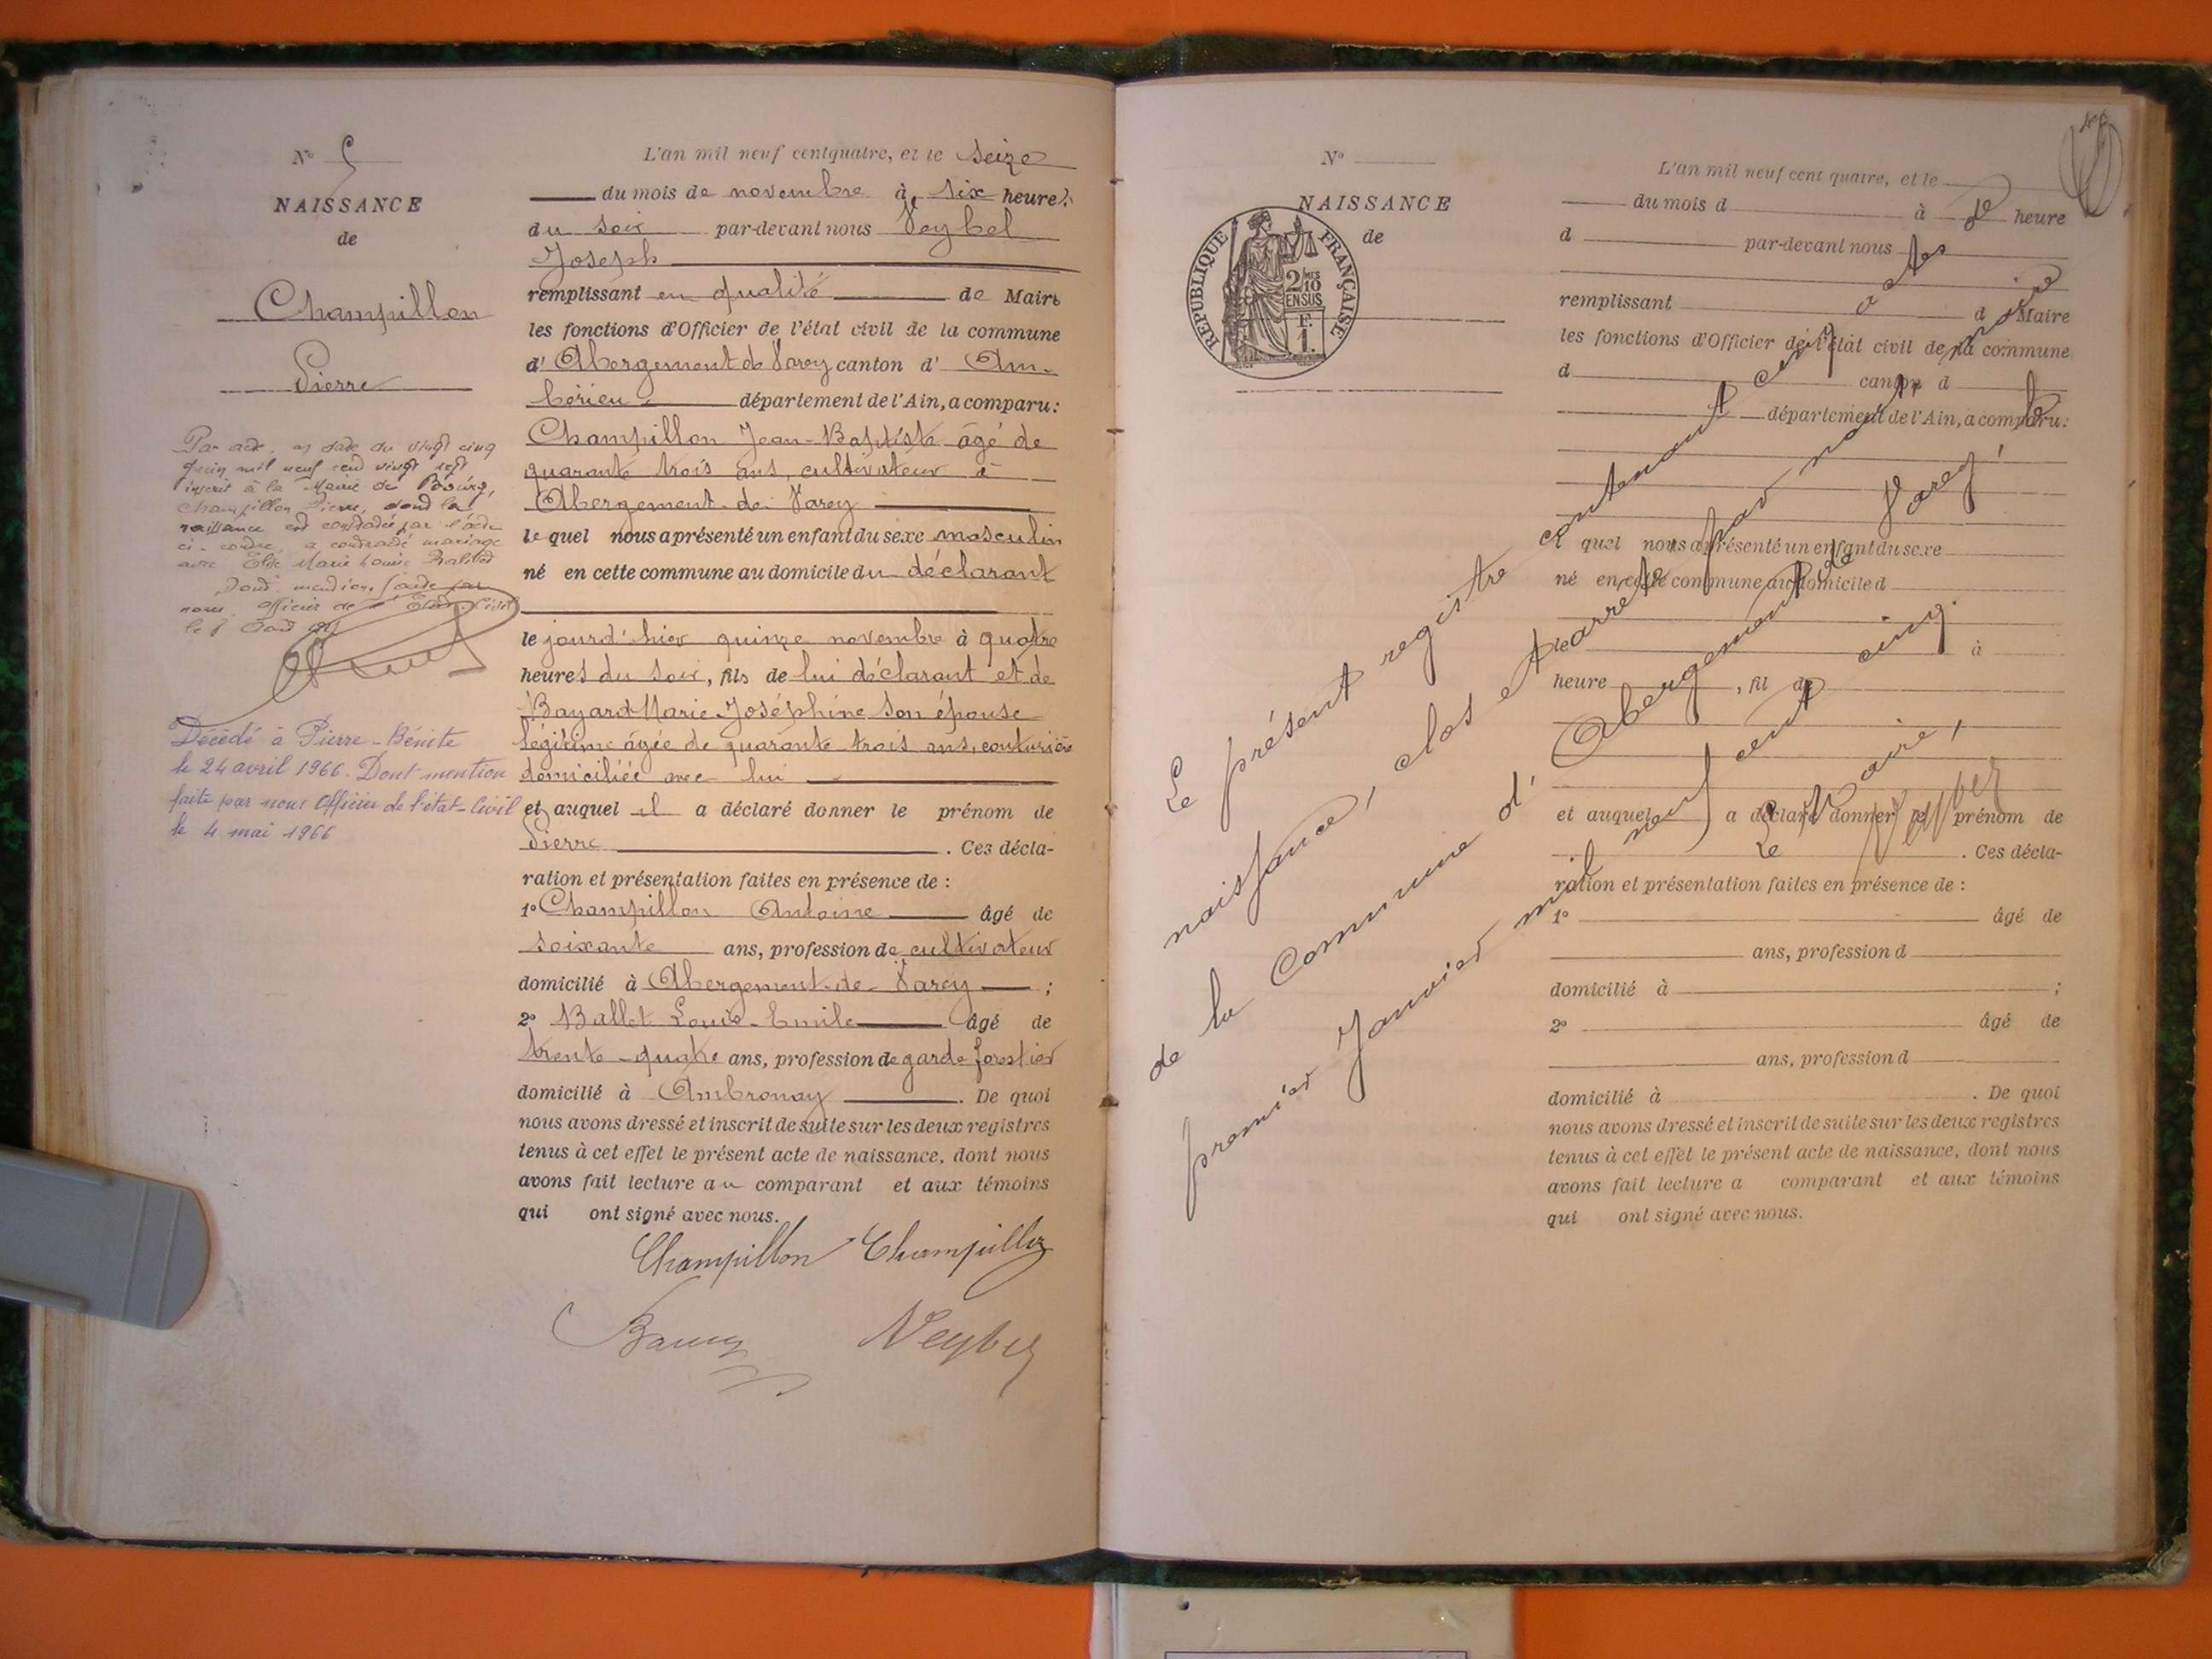 N° 5
NAISSANCE
de
Champillon
Pierre
Par acte en date du vingt cinq
juin mil neuf cent vingt sept
inscrit à la Mairie de Bourg,
Champillon Pierre, dont la
naissance est constatée par l'acte
ci-contre, a contracté mariage
avec Marie Louise
Dont mention faite par
nous Officier de l'Etat-Civil
le
Décédé à Pierre-Bénite
le 24 avril 1966. Dont mention
faite par nous Officier de l'état-Civil
le 4 mai 1966
L'an mil neuf cent quatre, et le seize
du mois de novembre à six heures
du soir par-devant nous Veybel
Joseph
remplissant en qualité de Maire
les fonctions d'Officier de l'état civil de la commune
d' Abergement de Varey canton d' Am-
bérieu département de l'Ain, a comparu :
Champillon Jean-Baptiste âgé de
quarante trois ans, cultivateur à
Abergement-de-Varey
le quel nous a présenté un enfant du sexe masculin
né en cette commune au domicile du déclarant
le jourd'hier quinze novembre à quatre
heures du soir, fils de lui déclarant et de
Bayard Marie-Joséphine son épouse
légitime âgée de quarante trois ans, couturière
domiciliée avec lui
et auquel il a déclaré donner le prénom de
Pierre . Ces décla-
ration et présentation faites en présence de :
1° Champillon Antoine âgé de
soixante ans, profession de cultivateur
domicilié à Abergement-de-Varey ;
2° Ballet Louis-Emile âgé de
trente-quatre ans, profession de garde forestier
domicilié à Ambronay . De quoi
nous avons dressé et inscrit de suite sur les deux registres
tenus à cet effet le présent acte de naissance, dont nous
avons fait lecture au comparant et aux témoins
qui ont signé avec nous.
Champillon Champillon
Veybel
N°
NAISSANCE
de
REPUBLIQUE FRANÇAISE
2/10
EN SUS
F.
1.
L'an mil neuf cent quatre, et le
du mois d à heure
d par-devant nous
remplissant d Maire
les fonctions d'Officier de l'état civil de la commune
d canton d
département de l'Ain, a comparu :
quel nous a présenté un enfant du sexe
né en cette commune au domicile d
le à
heure , fil de
et auquel a déclaré donner le prénom de
. Ces décla-
ration et présentation faites en présence de :
1° âgé de
ans, profession d
domicilié à ;
2° âgé de
ans, profession d
domicilié à . De quoi
nous avons dressé et inscrit de suite sur les deux registres
tenus à cet effet le présent acte de naissance, dont nous
avons fait lecture a comparant et aux témoins
qui ont signé avec nous.
Le présent registre contenant cinq actes de
naissance, clos et arrêté par nous, maire
de la Commune d'Abergement de Varey, le
premier Janvier mil neuf cent cinq.
Le Maire,
Veybel